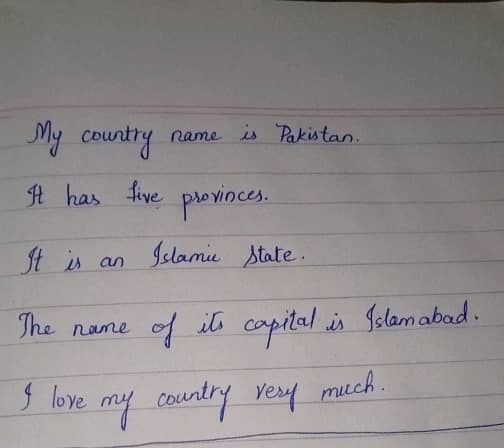 My country name is Pakistan.
It has five provinces.
It is an Islamic State.
The name of its capital is Islamabad.
I love my country very much.